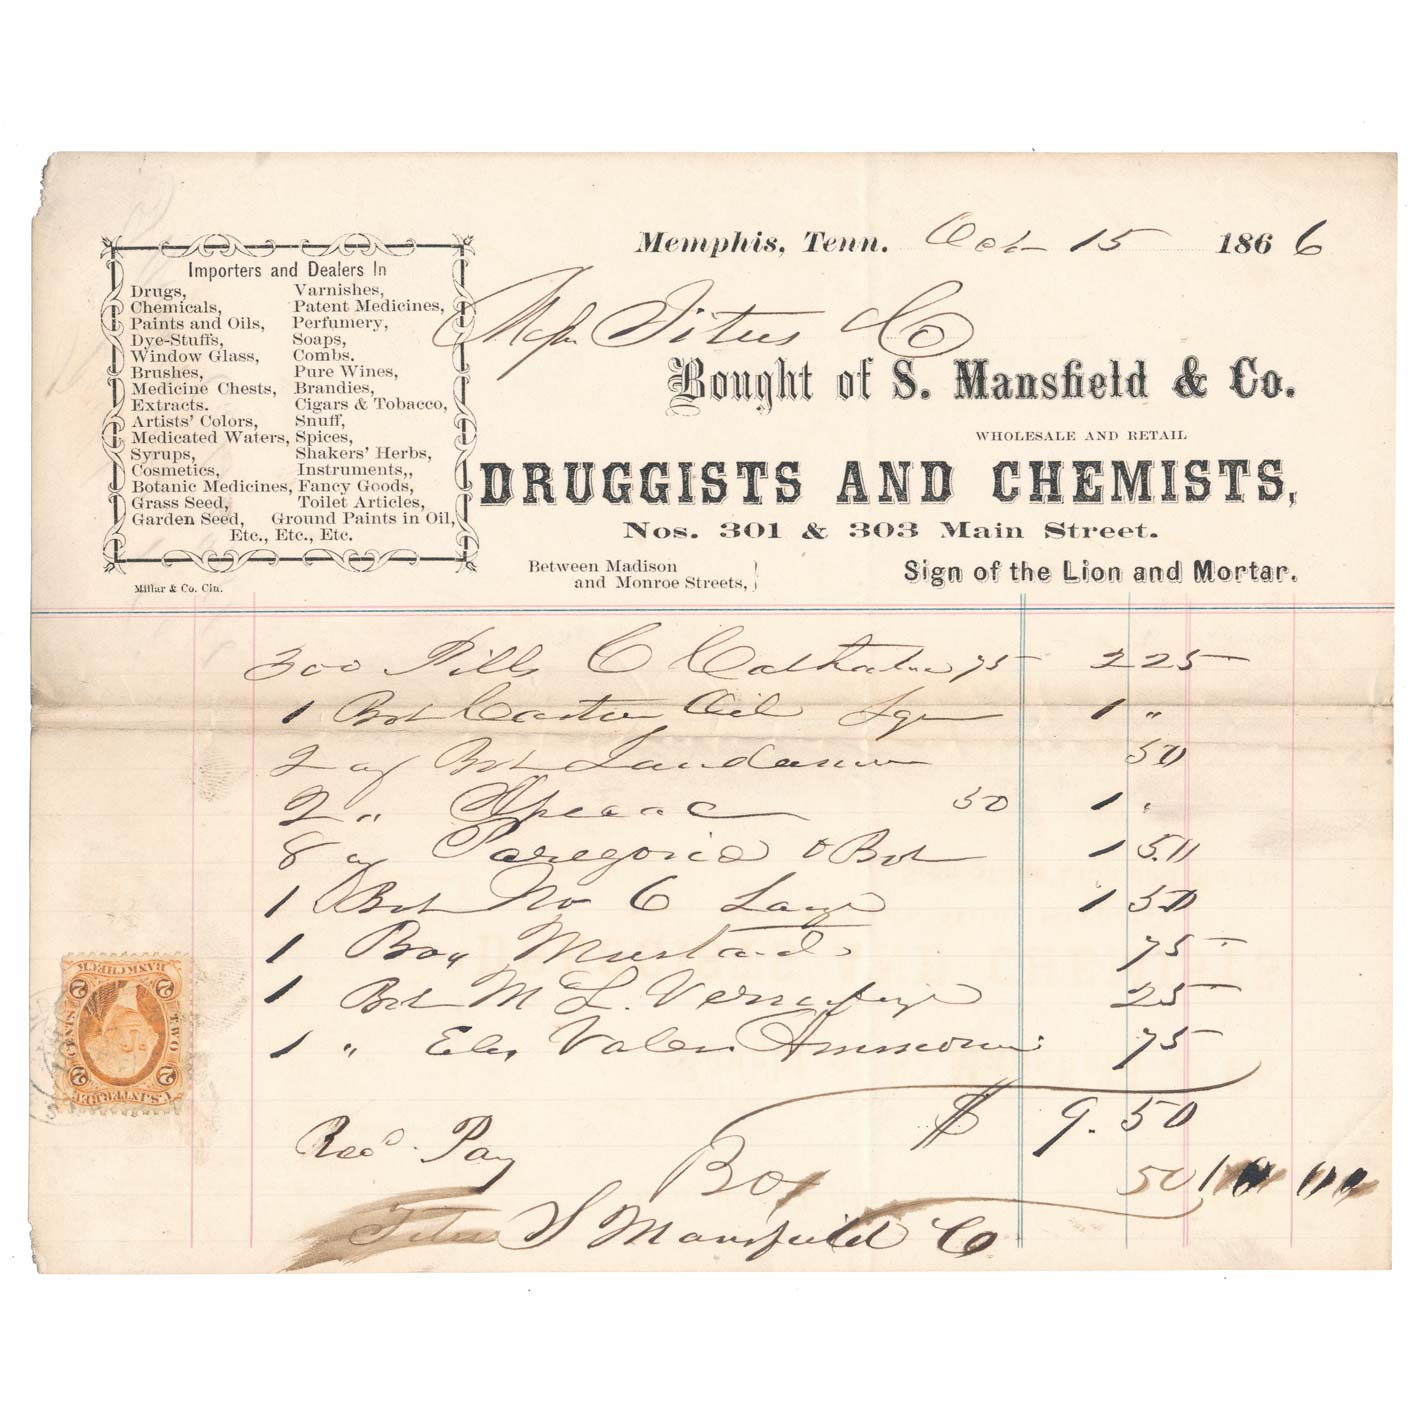 Memphis, Tenn. Oct 15 1866
Titus & Co
Bought of S. Mansfield & Co.
WHOLESALE AND RETAIL
DRUGGISTS AND CHEMISTS,
Nos. 301 & 303 Main Street.
Between Madison
and Monroe Streets,
Sign of the Lion and Mortar.
Importers and Dealers In
Drugs, Varnishes,
Chemicals, Patent Medicines,
Paints and Oils, Perfumery,
Dye-Stuffs, Soaps,
Window Glass, Combs.
Brushes, Pure Wines,
Medicine Chests, Brandies,
Extracts. Cigars & Tobacco,
Artists' Colors, Snuff,
Medicated Waters, Spices,
Syrups, Shakers' Herbs,
Cosmetics, Instruments,,
Botanic Medicines, Fancy Goods,
Grass Seed, Toilet Articles,
Garden Seed, Ground Paints in Oil,
Etc., Etc., Etc.
Millar & Co. Cin.
300 Pills C 75 2 25
1 Bot Castor Oil 1 "
2 Bot Laudanum 50
2 " Ipecac 50 1
8 Paregoric & Bot 1 50
1 Bot No 6 Large 1 50
1 Box Mustard 75
1 Bot M L Vermifuge 25
1 " Elix Valer Ammonia 75
$ 9.50
Recd Pay
Box 50 10 00
S Mansfield & Co
U.S. INTER. REV.
2 2
TWO CENTS
BANK CHECK
2 2